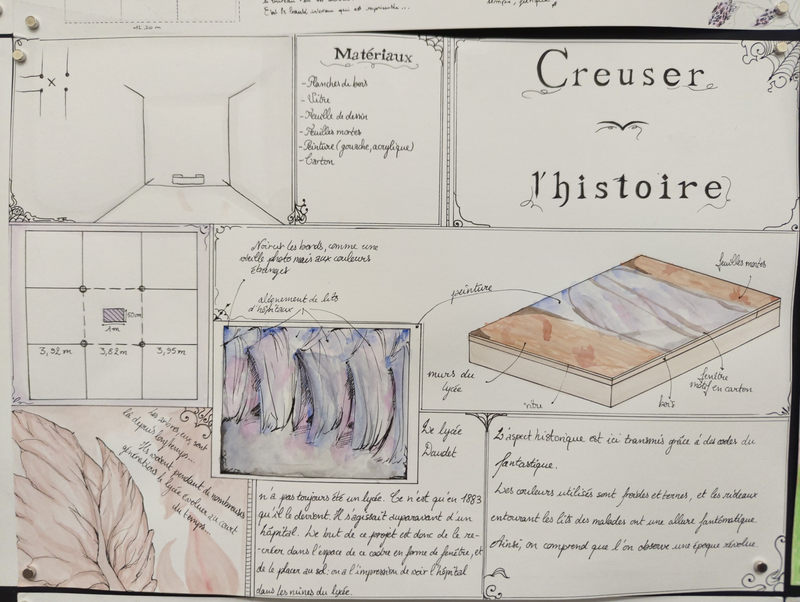 11,20 m
Et si la beauté intérieure qui est imprimée...
temps, jusque
Matériaux
- Planches de bois
- Vitre
- Feuille de dessin
- Feuilles mortes
- Peinture (gouache, acrylique)
- Carton
Creuser
l'histoire
50cm
1m
3,92m
3,82m
3,95m
Noircir les bords, comme une
vieille photo mais aux couleurs
étranges
alignement de lits
d'hôpitaux
peinture
feuilles mortes
murs du
lycée
vitre
bois
fenêtre
motif en carton
Les arbres eux sont
là depuis longtemps.
Ils voient pendant de nombreuses
générations le lycée évoluer au court
du temps...
Le lycée
Daudet
n'a pas toujours été un lycée. Ce n'est qu'en 1883
qu'il le devient. Il s'agissait auparavant d'un
hôpital. Le but de ce projet est donc de le re-
-créer dans l'espace de ce cadre en forme de fenêtre, et
de le placer au sol: on a l'impression de voir l'hôpital
dans les ruines du lycée.
L'aspect historique est ici transmis grâce à des codes du
fantastique.
Les couleurs utilisés sont froides et ternes, et les rideaux
entourant les lits des malades ont une allure fantômatique.
Ainsi, on comprend que l'on observe une époque révolue.